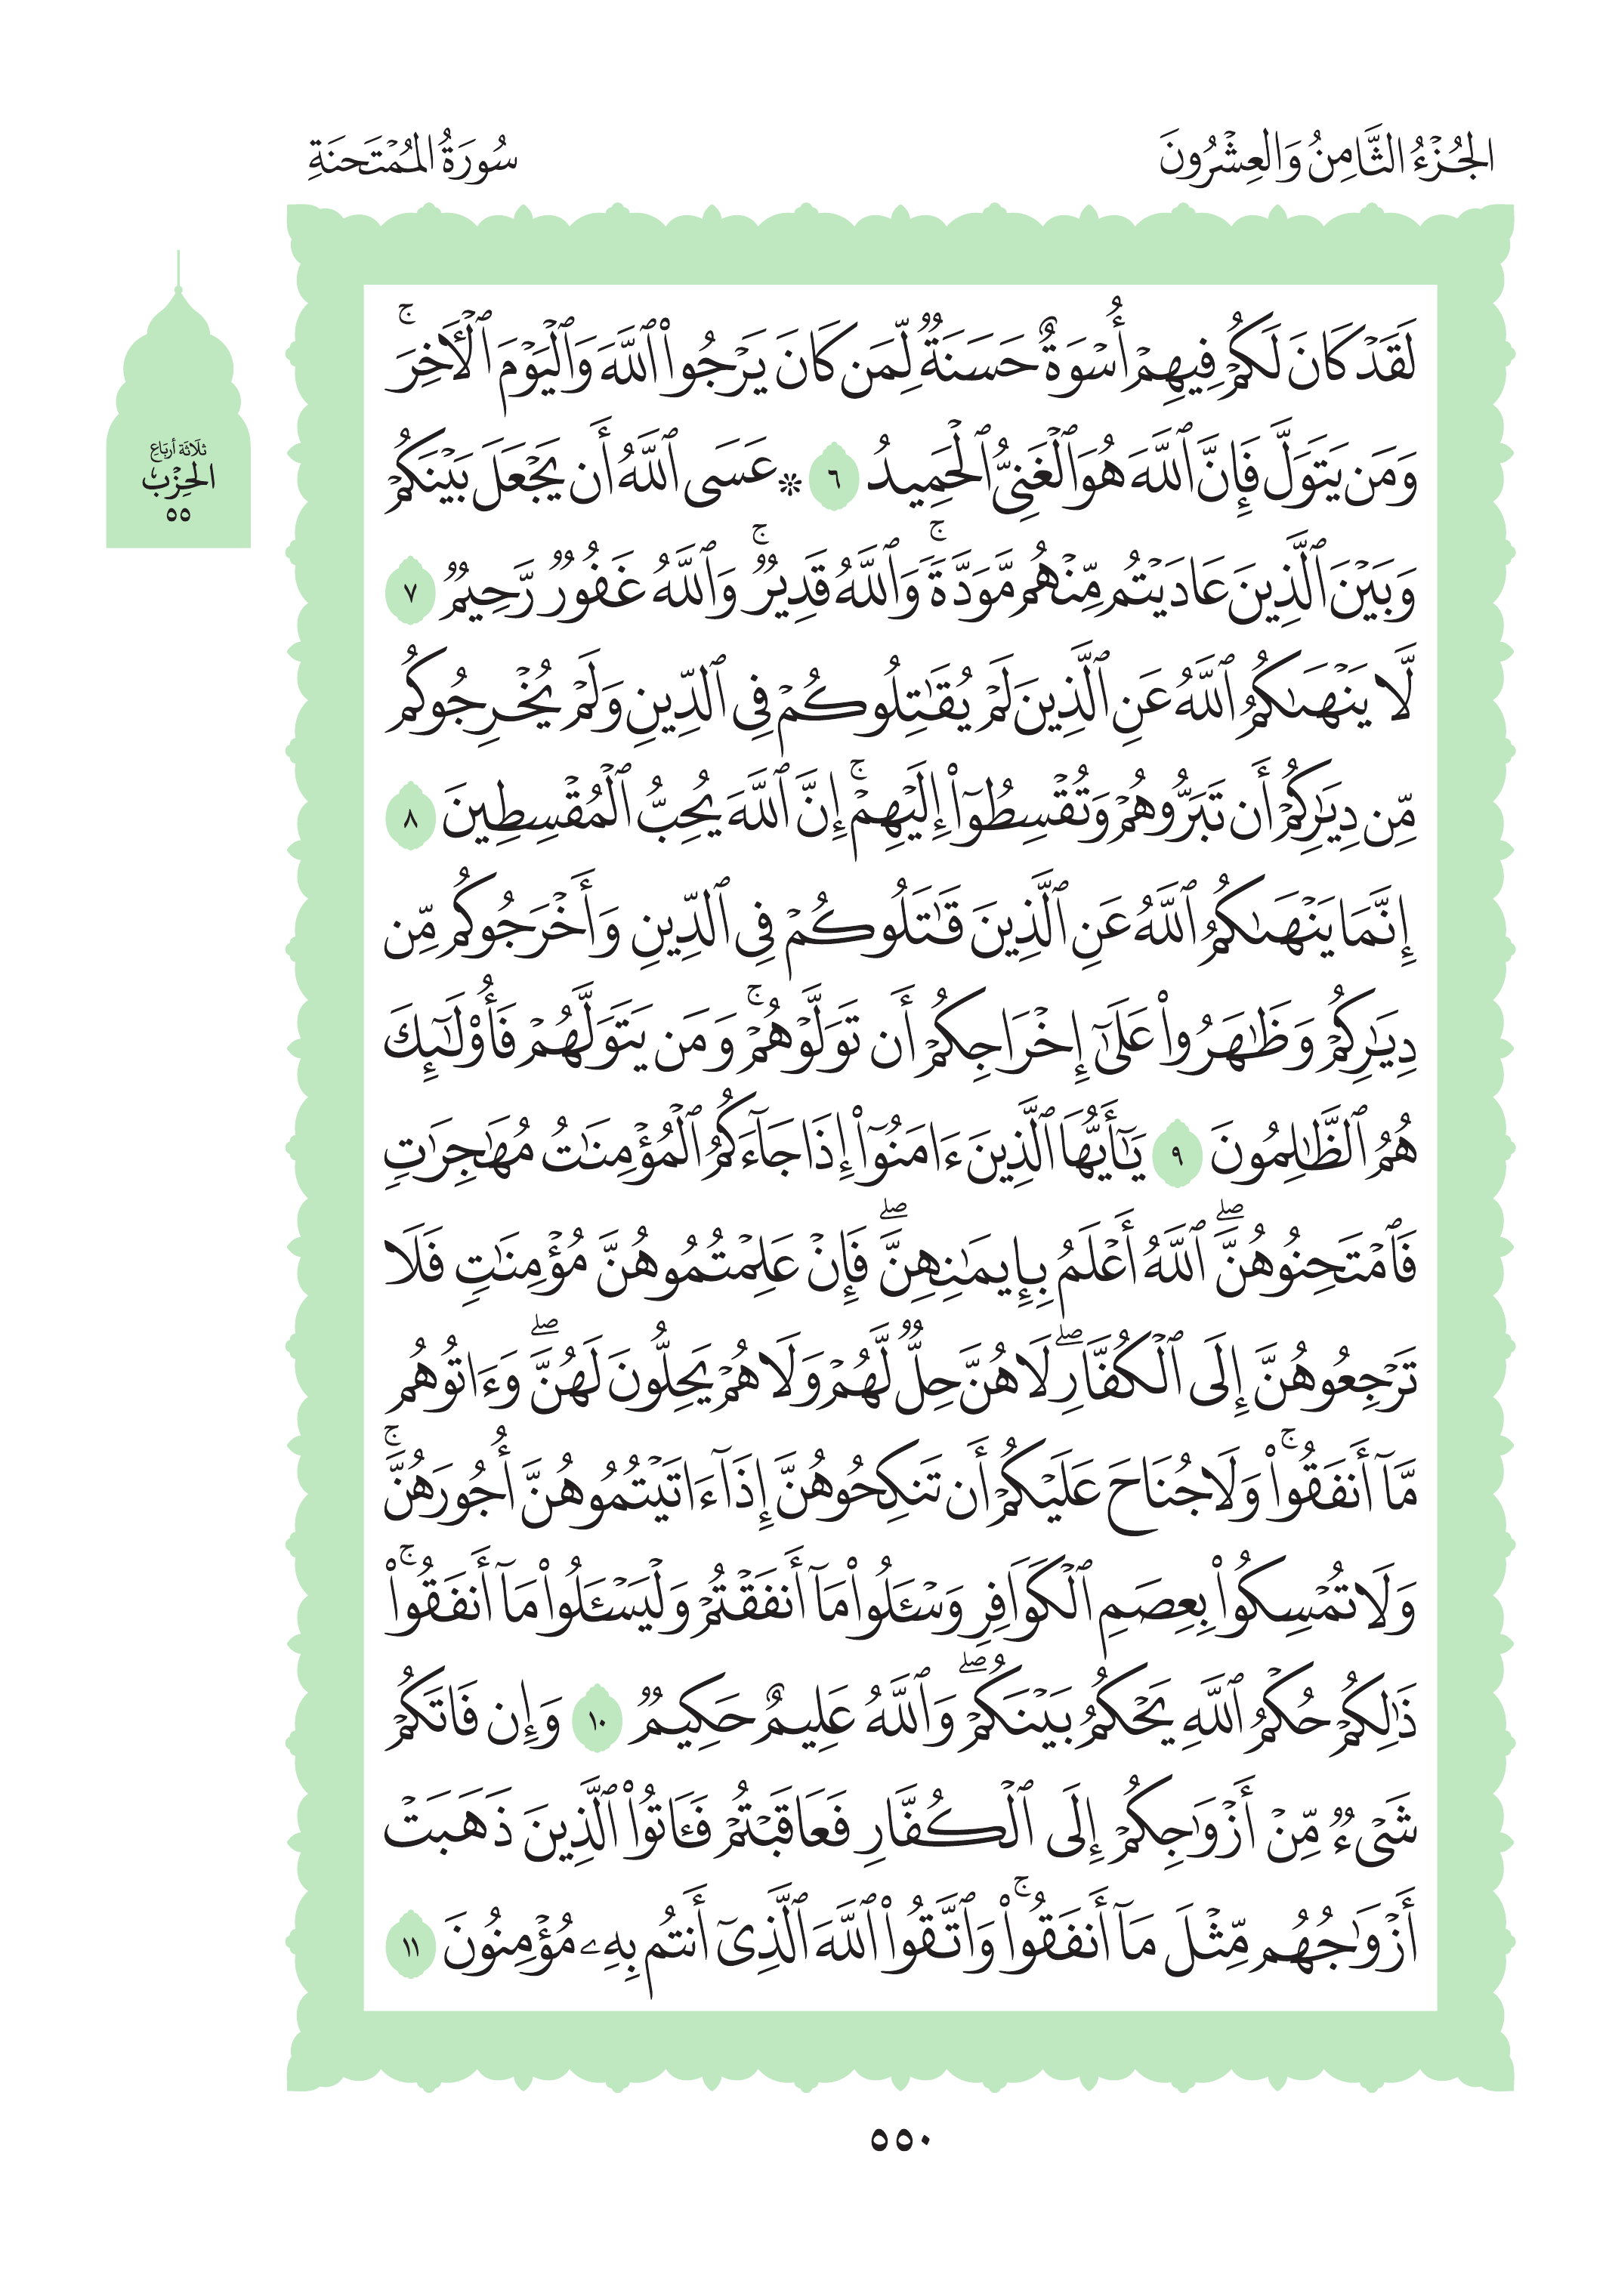 الجُزْءُ الثَّامِنُ وَالعِشْرُونَ
سُورَةُ المُمْتَحنَةِ
لَقَدْ كَانَ لَكُمْ فِيهِمْ أُسْوَةٌ حَسَنَةٌ لِّمَن كَانَ يَرْجُواْ ٱللَّهَ وَٱلْيَوْمَ ٱلْأٓخِرَۚ
وَمَن يَتَوَلَّ فَإِنَّ ٱللَّهَ هُوَ ٱلْغَنِىُّ ٱلْحَمِيدُ ٦ ۞ عَسَى ٱللَّهُ أَن يَجْعَلَ بَيْنَكُمْ
وَبَيْنَ ٱلَّذِينَ عَادَيْتُم مِّنْهُم مَّوَدَّةًۚ وَٱللَّهُ قَدِيرٌۚ وَٱللَّهُ غَفُورٌ رَّحِيمٌ ٧
لَّا يَنْهَىٰكُمُ ٱللَّهُ عَنِ ٱلَّذِينَ لَمْ يُقَٰتِلُوكُمْ فِى ٱلدِّينِ وَلَمْ يُخْرِجُوكُم
مِّن دِيَٰرِكُمْ أَن تَبَرُّوهُمْ وَتُقْسِطُوٓاْ إِلَيْهِمْۚ إِنَّ ٱللَّهَ يُحِبُّ ٱلْمُقْسِطِينَ ٨
إِنَّمَا يَنْهَىٰكُمُ ٱللَّهُ عَنِ ٱلَّذِينَ قَٰتَلُوكُمْ فِى ٱلدِّينِ وَأَخْرَجُوكُم مِّن
دِيَٰرِكُمْ وَظَٰهَرُواْ عَلَىٰٓ إِخْرَاجِكُمْ أَن تَوَلَّوْهُمْۚ وَمَن يَتَوَلَّهُمْ فَأُوْلَٰٓئِكَ
هُمُ ٱلظَّٰلِمُونَ ٩ يَٰٓأَيُّهَا ٱلَّذِينَ ءَامَنُوٓاْ إِذَا جَآءَكُمُ ٱلْمُؤْمِنَٰتُ مُهَٰجِرَٰتٍ
فَٱمْتَحِنُوهُنَّۖ ٱللَّهُ أَعْلَمُ بِإِيمَٰنِهِنَّۖ فَإِنْ عَلِمْتُمُوهُنَّ مُؤْمِنَٰتٍ فَلَا
تَرْجِعُوهُنَّ إِلَى ٱلْكُفَّارِۖ لَا هُنَّ حِلٌّ لَّهُمْ وَلَا هُمْ يَحِلُّونَ لَهُنَّۖ وَءَاتُوهُم
مَّآ أَنفَقُواْۚ وَلَا جُنَاحَ عَلَيْكُمْ أَن تَنكِحُوهُنَّ إِذَآ ءَاتَيْتُمُوهُنَّ أُجُورَهُنَّۚ
وَلَا تُمْسِكُواْ بِعِصَمِ ٱلْكَوَافِرِ وَسْـَٔلُواْ مَآ أَنفَقْتُمْ وَلْيَسْـَٔلُواْ مَآ أَنفَقُواْۚ
ذَٰلِكُمْ حُكْمُ ٱللَّهِ يَحْكُمُ بَيْنَكُمْۖ وَٱللَّهُ عَلِيمٌ حَكِيمٌ ١٠ وَإِن فَاتَكُمْ
شَىْءٌ مِّنْ أَزْوَٰجِكُمْ إِلَى ٱلْكُفَّارِ فَعَاقَبْتُمْ فَـَٔاتُواْ ٱلَّذِينَ ذَهَبَتْ
أَزْوَٰجُهُم مِّثْلَ مَآ أَنفَقُواْۚ وَٱتَّقُواْ ٱللَّهَ ٱلَّذِىٓ أَنتُم بِهِۦ مُؤْمِنُونَ ١١
ثلَاثَة أربَاع
الحِزْب
٥٥
٥٥٠